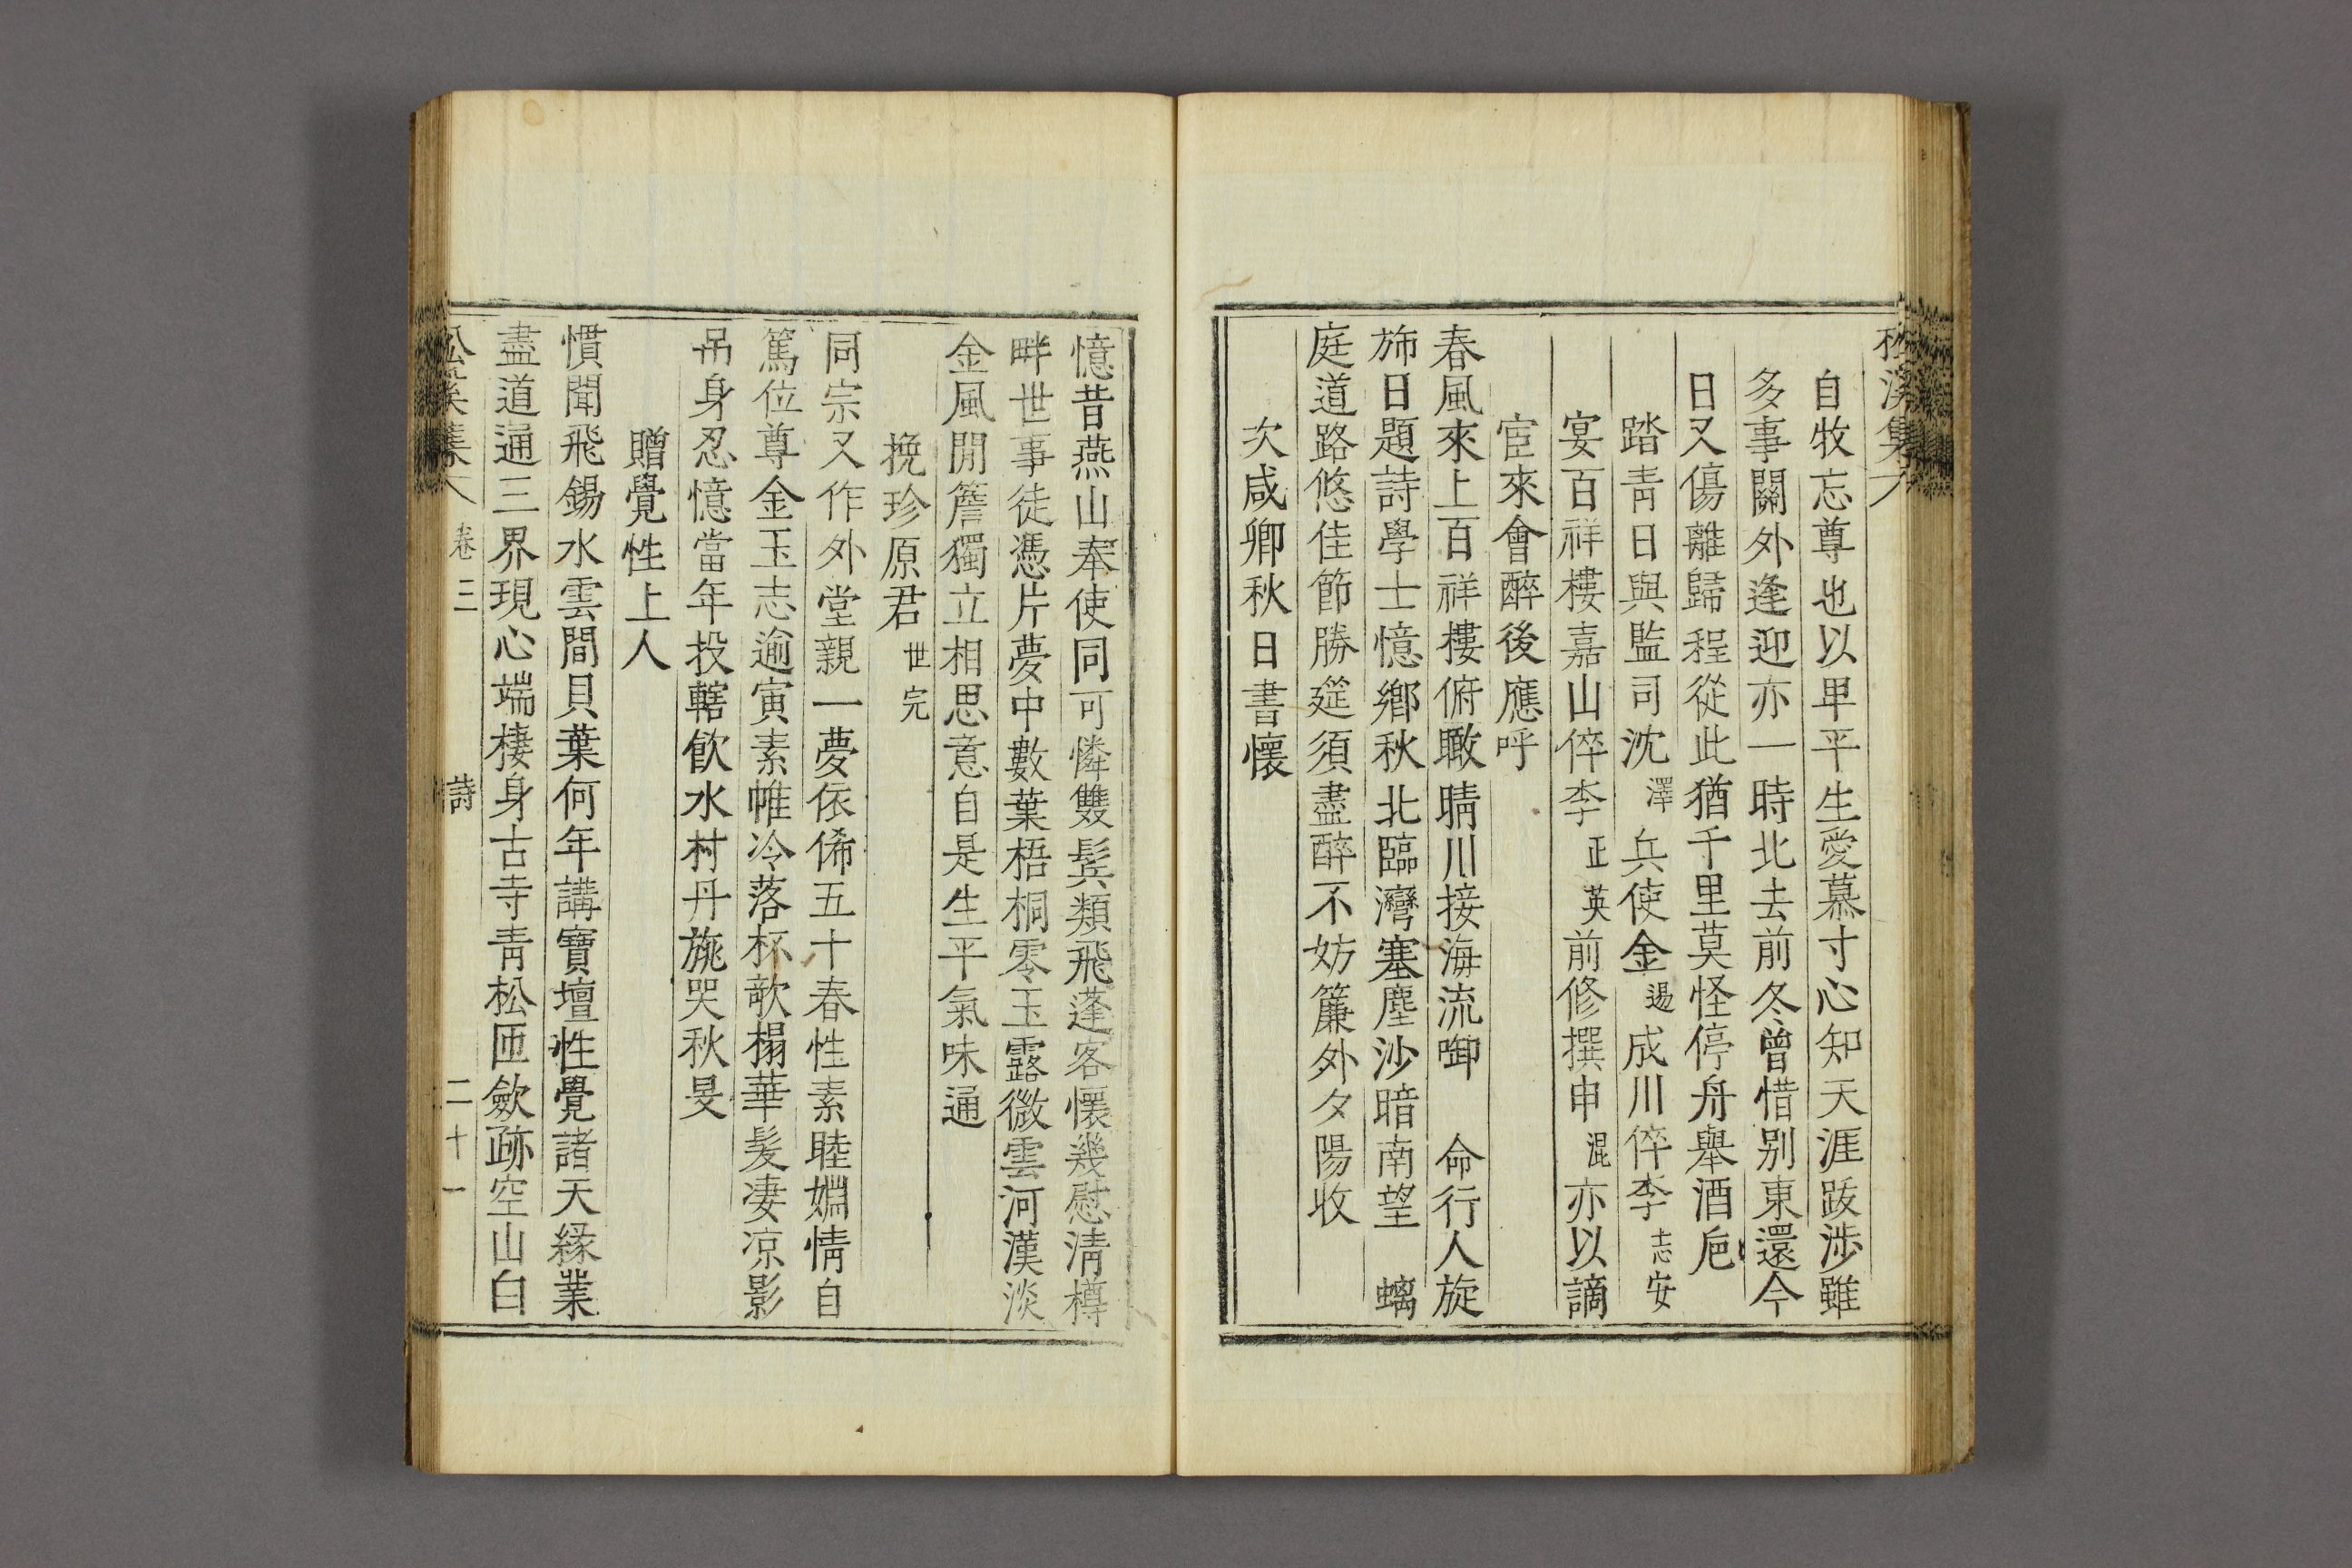 自牧忘尊也以卑平生愛慕寸心知天涯跋涉雖
多事關外逢迎亦一時北去前冬曾惜別東還今
日又傷離歸程從此猶千里莫怪停舟舉酒巵
踏靑日與監司沈澤兵使金遏成川倅李志安
宴百祥樓嘉山倅李正英前修撰申混亦以謫
宦來會醉後應呼
春風來上百祥樓俯瞰晴川接海流啣命行人旋
斾日題詩學士憶鄕秋北臨灣塞塵沙暗南望螭
庭道路悠佳節勝筵須盡醉不妨簾外夕陽收
次咸卿秋日書懷
憶昔燕山奉使同可憐雙鬂類飛蓬客懷幾慰淸樽
畔世事徒憑片夢中數葉梧桐零玉露微雲河漢淡
金風閒簷獨立相思意自是生平氣味通
挽珍原君世完
同宗又作外堂親一夢依俙五十春性素睦婣情自
篤位尊金玉志逾寅素帷冷落杯歌榻華髮凄凉影
吊身忍憶當年投轄飮水村丹旐哭秋旻
贈覺性上人
慣聞飛錫水雲間貝葉何年講寶壇性覺諸天緣業
盡道通三界現心端棲身古寺靑松匝斂跡空山白
卷三 詩 二十一